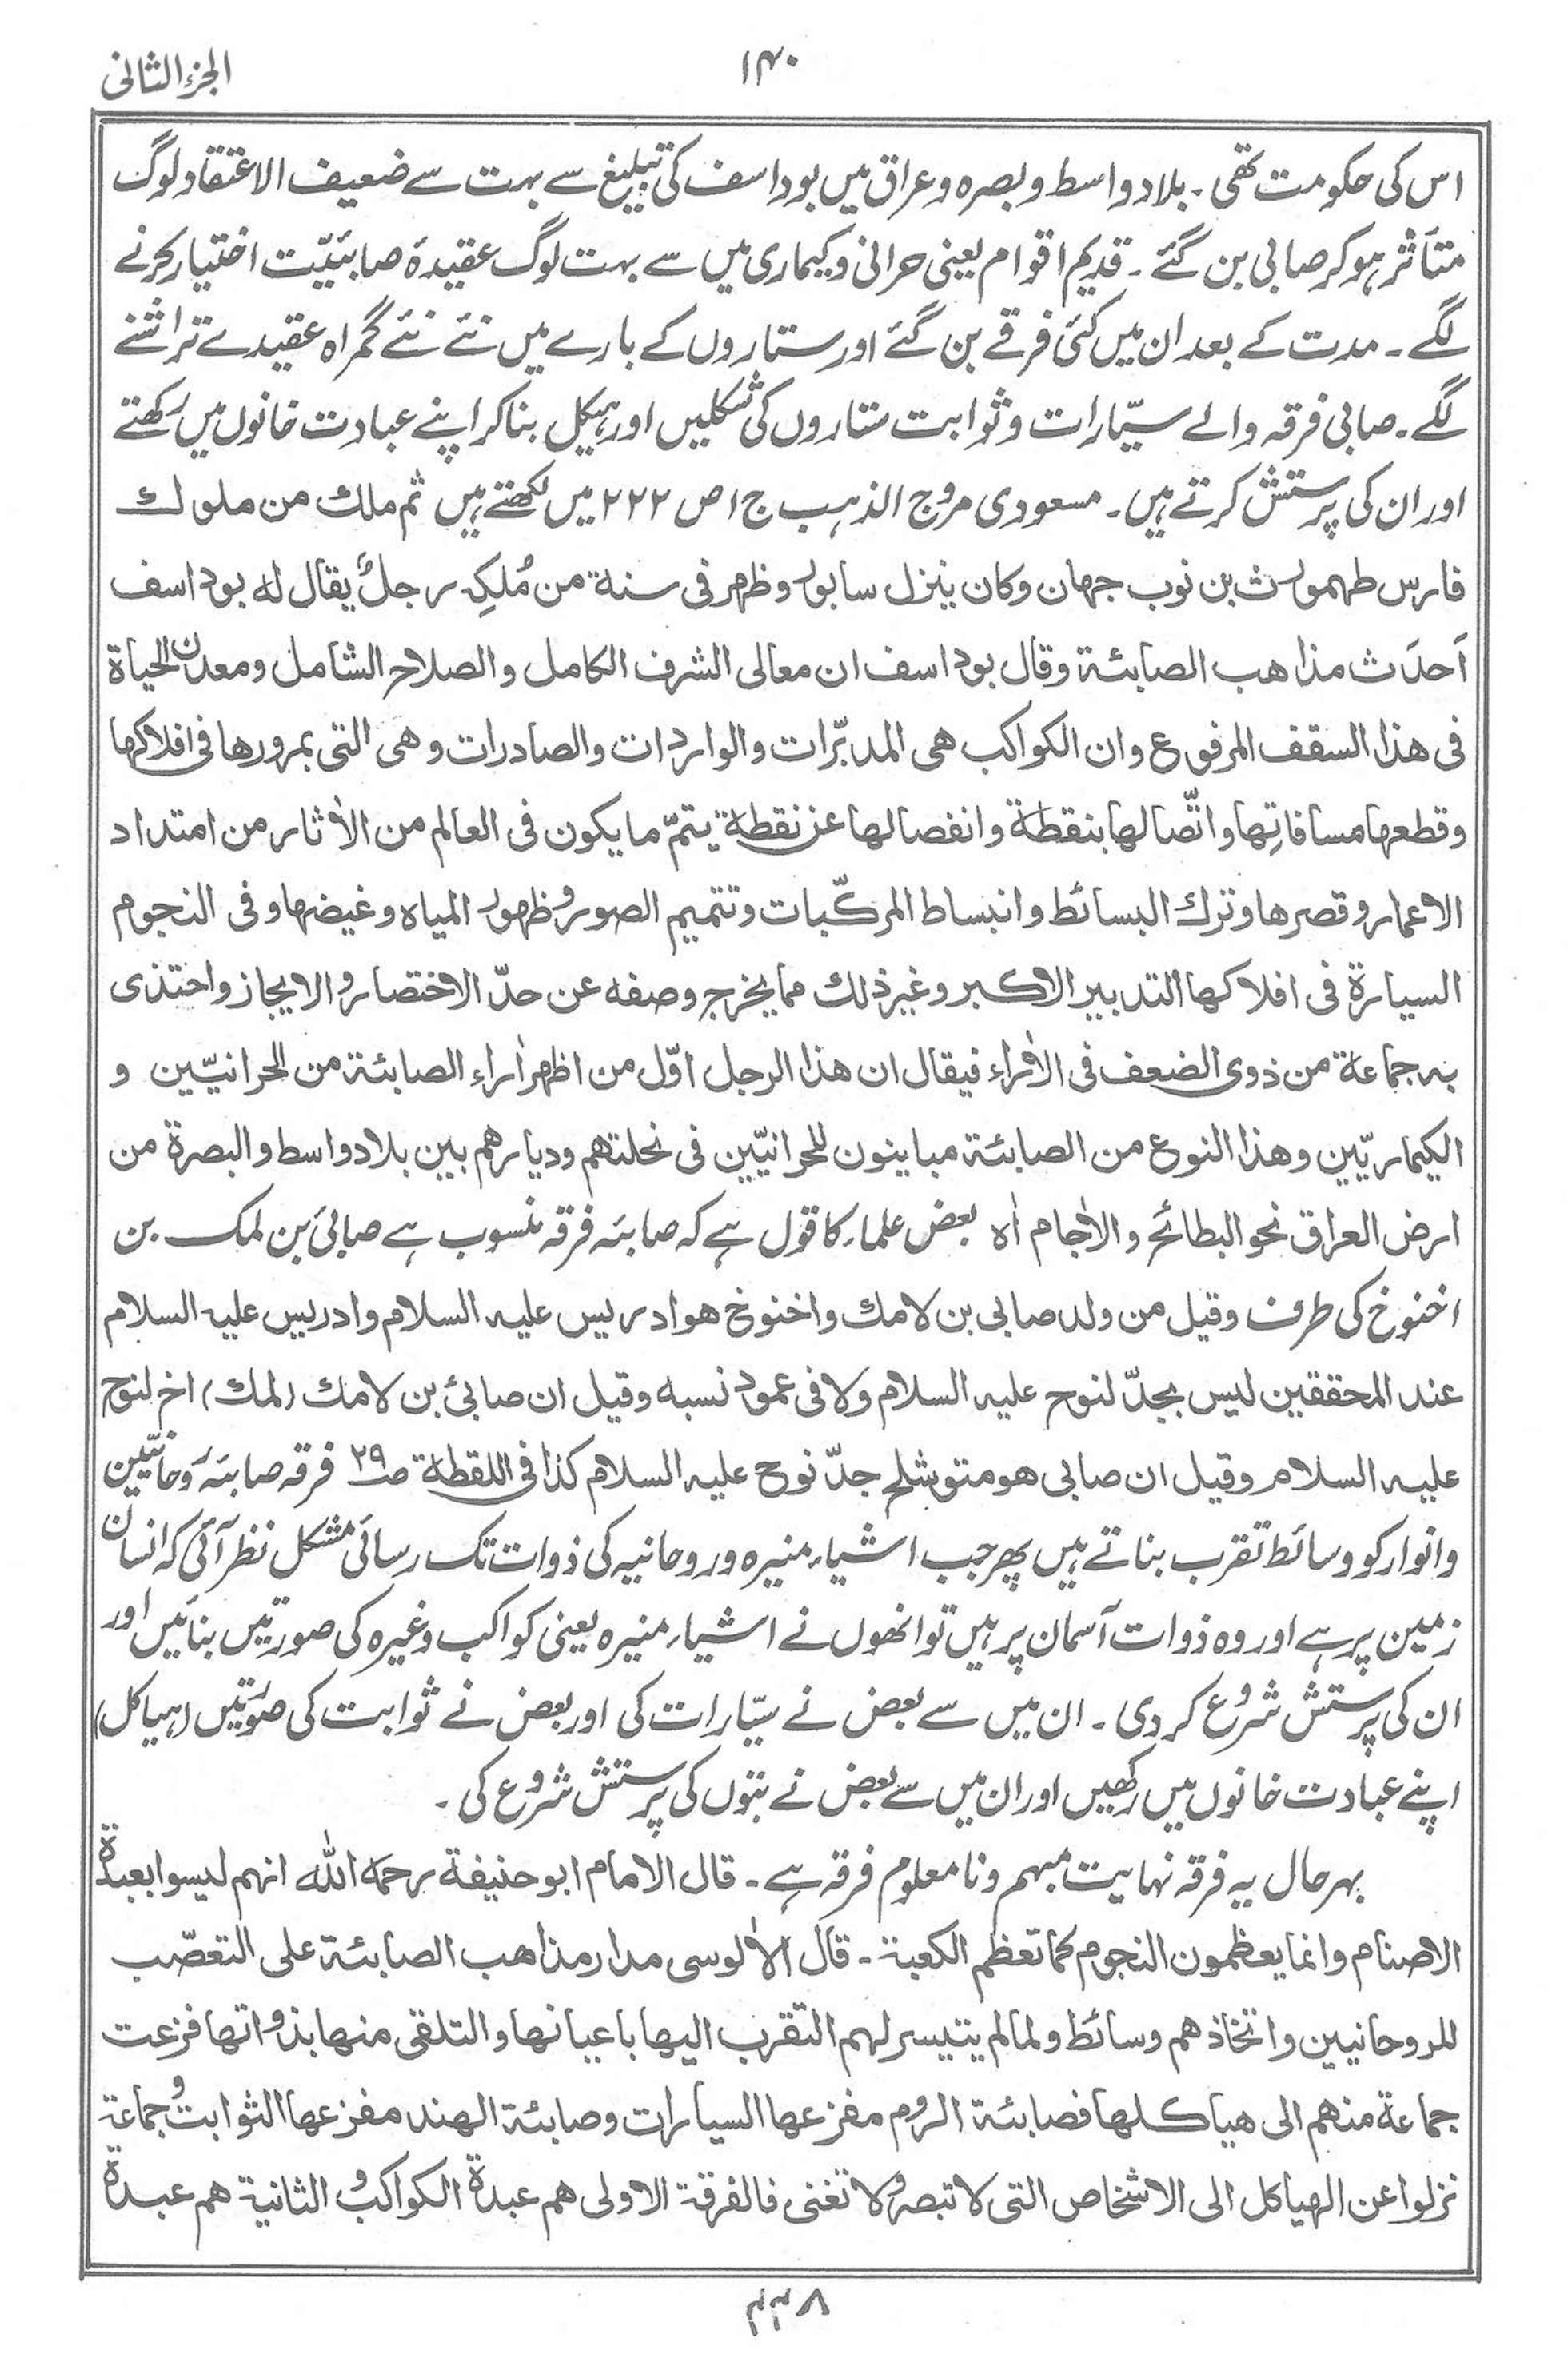 الجزء الثانی
۱۴۰
اس کی حکومت تھی۔ بلاد واسط وبصرہ وعراق میں بوداسف کی تبلیغ سے بہت سے ضعیف الاعتقاد لوگ
متأثر ہو کر صابی بن گئے۔ قدیم اقوام یعنی حرانی وکیماری میں سے بہت لوگ عقیدۂ صابئیّت اختیار کرنے
لگے۔ مدت کے بعد ان میں کئی فرقے بن گئے اور ستاروں کے بارے میں نئے نئے گمراہ عقیدے تراشنے
لگے۔ صابی فرقہ والے سیّارات وثوابت ستاروں کی شکلیں اور ہیکل بنا کر اپنے عبادت خانوں میں رکھتے
اور ان کی پرستش کرتے ہیں۔ مسعودی مروج الذہب ج۱ ص ۲۲۲ میں لکھتے ہیں ثم ملك من ملوك
فارس طهمورث بن نوب جهان وكان ينزل سابور وظهر فى سنة من مُلكِه رجلٌ يقال له بوداسف
اَحدَث مذاهب الصابئة وقال بوداسف ان معالى الشرف الكامل والصلاح الشامل ومعدن الحياة
فى هذا السقف المرفوع وان الكواكب هى المدبّرات والواردات والصادرات وهى التى بمرورها فى افلاكها
وقطعها مسافاتِها واتّصالها بنقطة وانفصالها عن نقطة يتمّ ما يكون فى العالم من الاٰثار من امتداد
الاعمار وقصرها وترك البسائط وانبساط المركّبات وتتميم الصور وظهور المياه وغيضها وفى النجوم
السيارة فى افلاكها التدبير الاكبر وغير ذلك مما يخرج وصفه عن حدّ الاختصار والايجاز واحتذى
به جماعة من ذوى الضعف فى الاٰراء فيقال ان هذا الرجل اوّل من اظهر اٰراء الصابئة من الحرانيّين و
الكيماريّين وهذا النوع من الصابئة مباينون للحرانيّين فى نحلتهم وديارهم بين بلاد واسط والبصرة من
ارض العراق نحو البطائح والاٰجام اه بعض علماء کا قول ہے کہ صابئہ فرقہ منسوب ہے صابیٔ بن لمک بن
اخنوخ کی طرف وقيل من ولد صابى بن لامك واخنوخ هو ادريس عليه السلام وادريس عليه السلام
عند المحققين ليس بجدّ لنوح عليه السلام ولا فى عمود نسبه وقيل ان صابئ بن لامك (لمك) اخ لنوح
عليه السلام وقيل ان صابى هو متوشلح جدّ نوح عليه السلام كذا فى اللقطة ص۲۹ فرقہ صابئہ روحانیّین
وانوار کو وسائط تقرب بناتے ہیں پھر جب اشیاء منیرہ وروحانیہ کی ذوات تک رسائی مشکل نظر آئی کہ انسان
زمین پر ہے اور وہ ذوات آسمان پر ہیں تو انھوں نے اشیاء منیرہ یعنی کواکب وغیرہ کی صورتیں بنائیں اور
ان کی پرستش شروع کر دی۔ ان میں سے بعض نے سیّارات کی اور بعض نے ثوابت کی صورتیں (ہیاکل)
اپنے عبادت خانوں میں رکھیں اور ان میں سے بعض نے بتوں کی پرستش شروع کی۔
بہر حال یہ فرقہ نہایت مبہم ونا معلوم فرقہ ہے۔ قال الامام ابو حنيفة رحمه الله انهم ليسوا بعبدة
الاصنام وانما يعظمون النجوم كما تعظم الكعبة۔ قال الاٰلوسى مدار مذاهب الصابئة على التعصّب
للروحانيين واتخاذهم وسائط ولما لم يتيسر لهم التقرب اليها باعيانها والتلقى منها بذواتها فزعت
جماعة منهم الى هياكلها فصابئة الروم مفزعها السيارات وصابئة الهند مفزعها الثوابت وجماعة
نزلوا عن الهياكل الى الاشخاص التى لا تبصر ولا تغنى فالفرقة الاولى هم عبدة الكواكب والثانية هم عبدة
۴۳۷